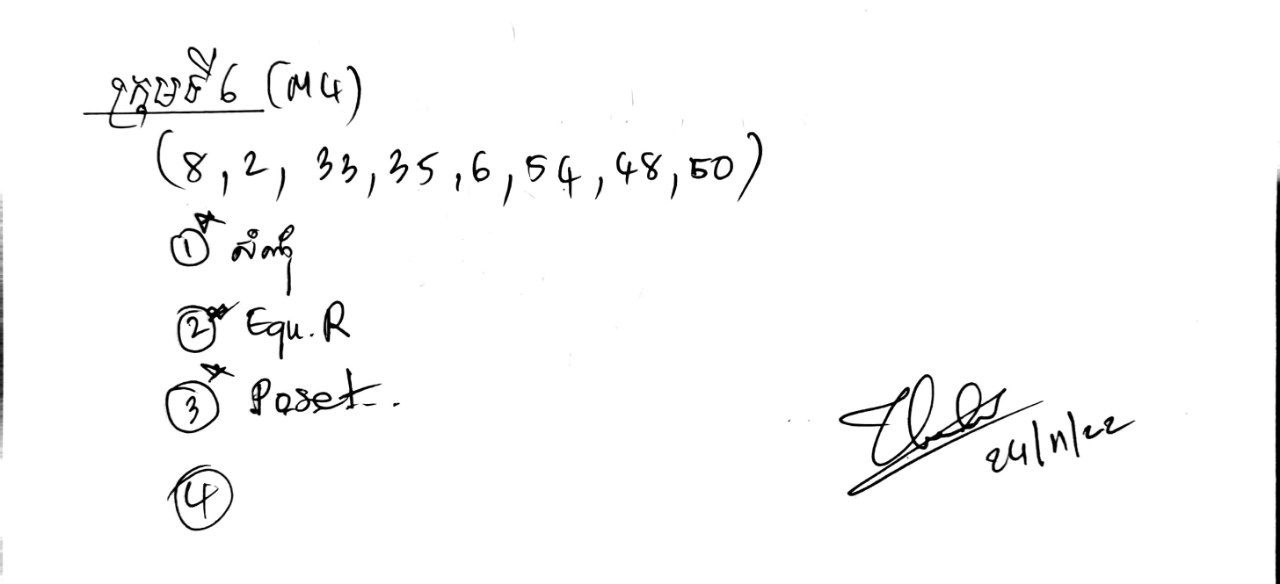 ក្រុមទី 6 (M4)
(8, 2, 33, 35, 6, 54, 48, 50)
① សំណុំ
② Equ. R
③ Poset.
④
24/11/22